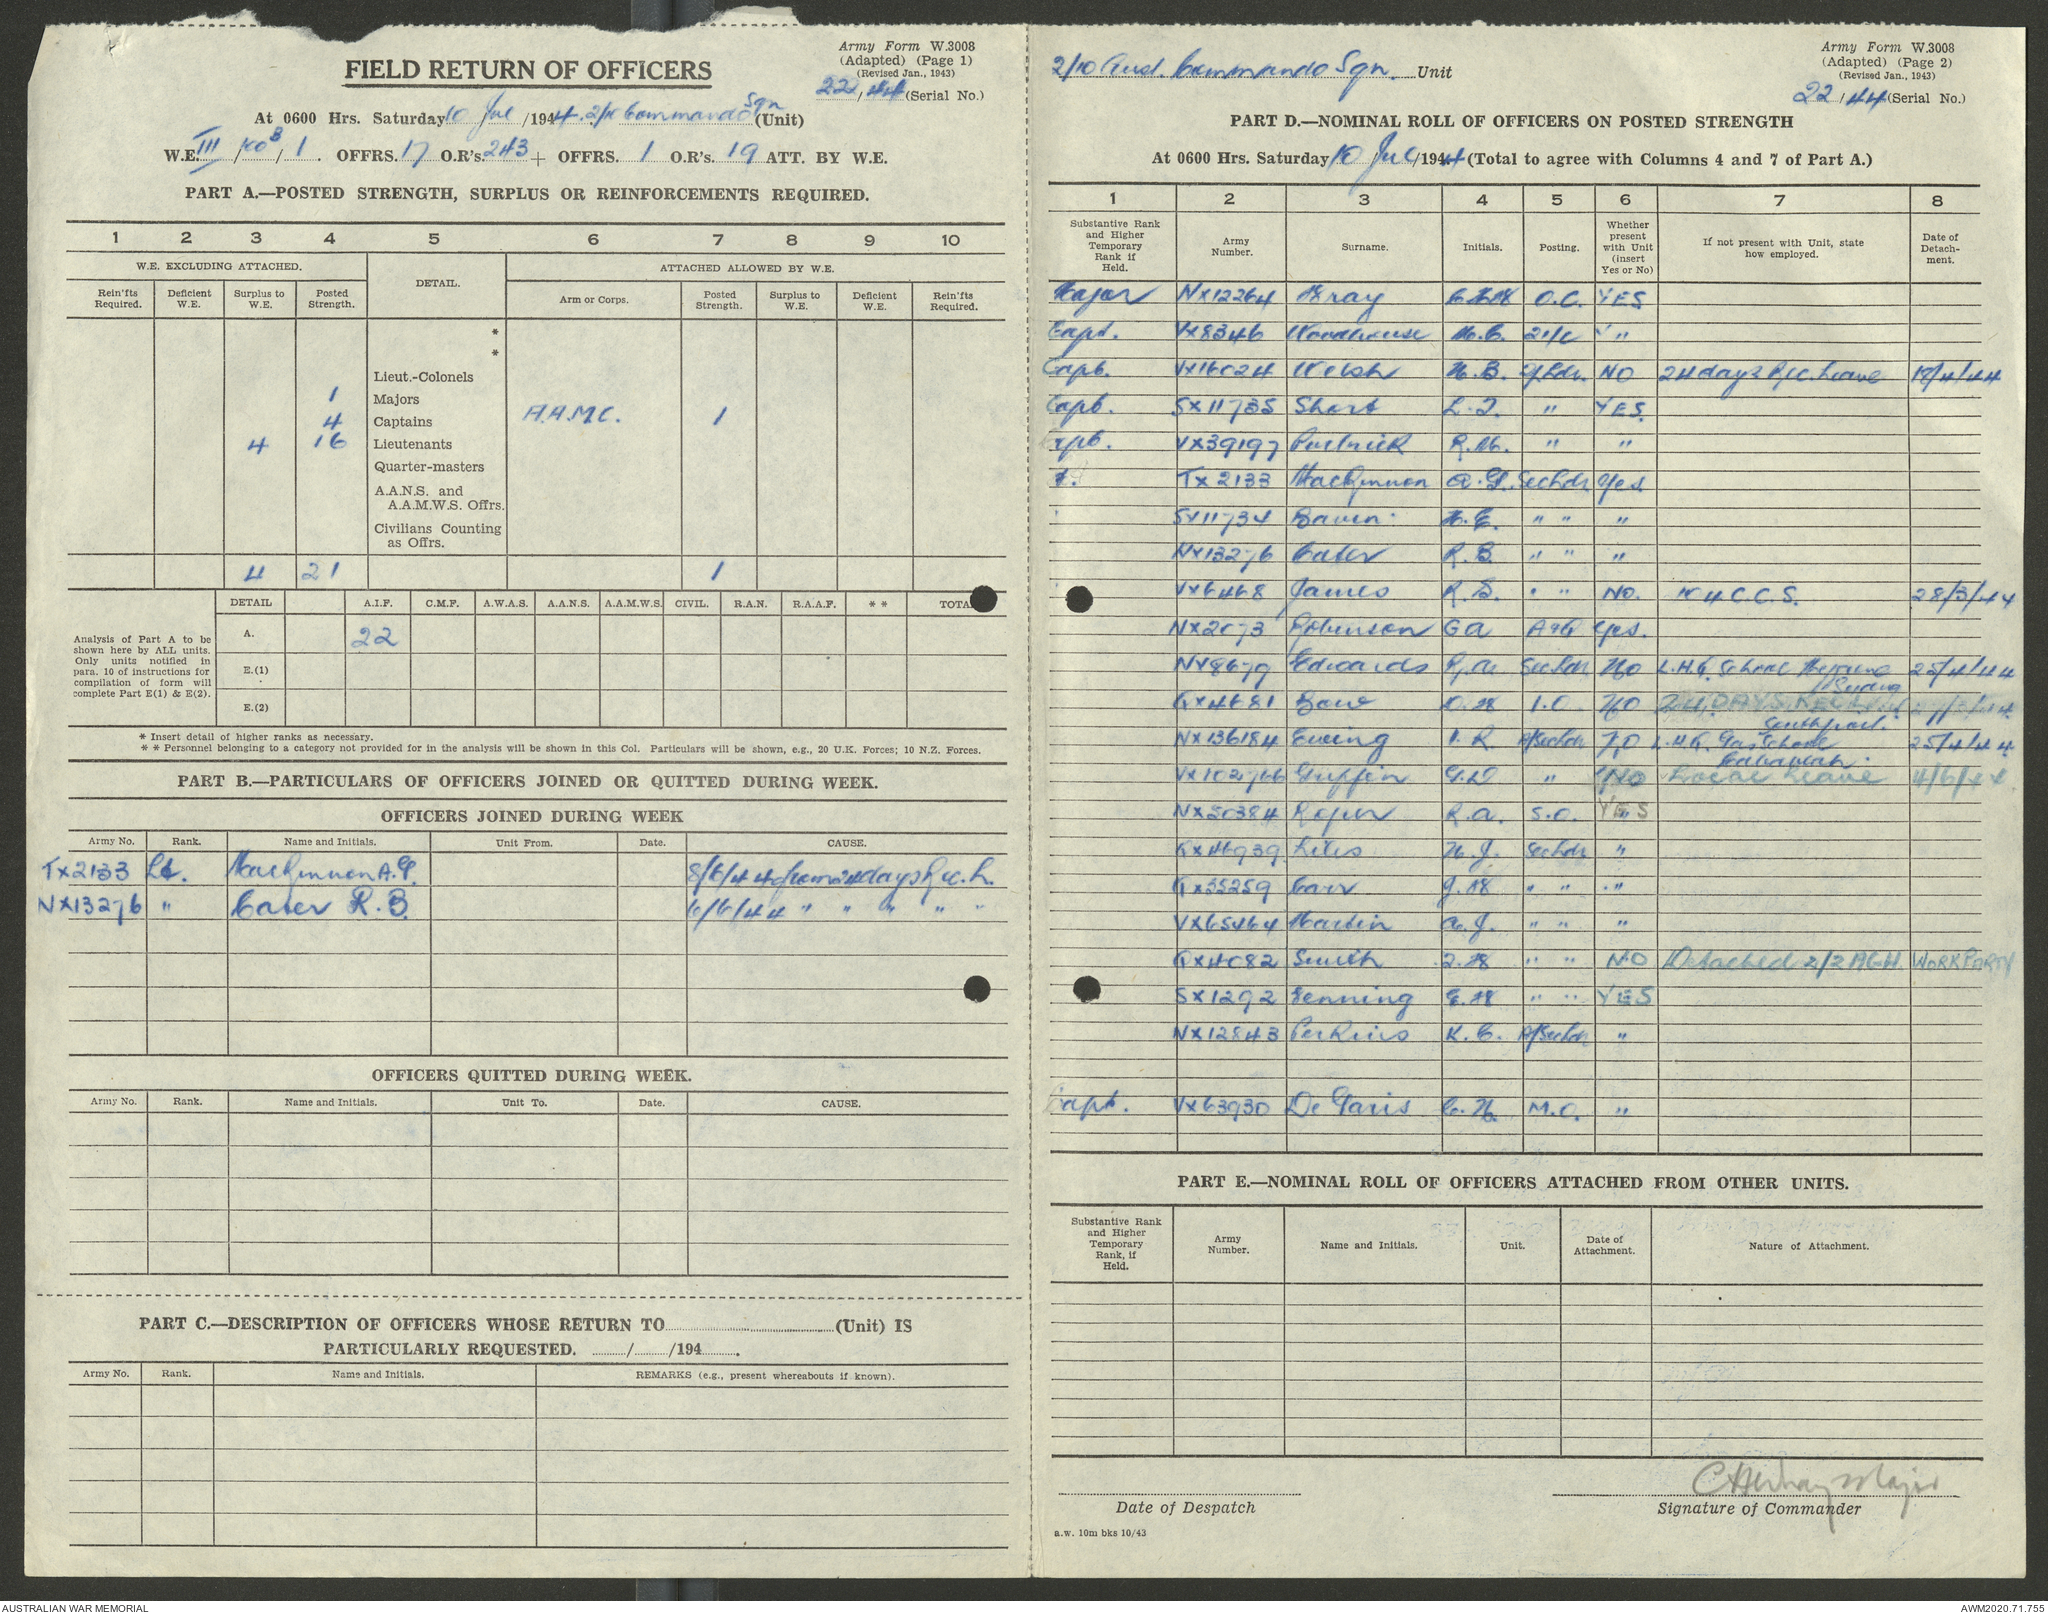 Army Form W.3008
(Adapted) (Page 1)
(Revised Jan., 1943)
22/44 (Serial No.)
FIELD RETURN OF OFFICERS
At 0600 Hrs. Saturday 10 Jul /1944. 2/10 Commando Sqn (Unit)
W.E. III / /1. OFFRS. 17 O.R's. 243 + OFFRS. 1 O.R's. 19 ATT. BY W.E.
PART A.—POSTED STRENGTH, SURPLUS OR REINFORCEMENTS REQUIRED.
1 2 3 4 5 6 7 8 9 10
W.E. EXCLUDING ATTACHED. DETAIL. ATTACHED ALLOWED BY W.E.
Rein'fts Required. Deficient W.E. Surplus to W.E. Posted Strength. Arm or Corps. Posted Strength. Surplus to W.E. Deficient W.E. Rein'fts Required.
*
*
Lieut.-Colonels
1 Majors
4 Captains A.A.M.C. 1
4 16 Lieutenants
Quarter-masters
A.A.N.S. and A.A.M.W.S. Offrs.
Civilians Counting as Offrs.
4 21 1
Analysis of Part A to be shown here by ALL units. Only units notified in para. 10 of instructions for compilation of form will complete Part E(1) & E(2).
DETAIL A.I.F. C.M.F. A.W.A.S. A.A.N.S. A.A.M.W.S. CIVIL. R.A.N. R.A.A.F. * * TOTA
A. 22
E.(1)
E.(2)
* Insert detail of higher ranks as necessary.
* * Personnel belonging to a category not provided for in the analysis will be shown in this Col. Particulars will be shown, e.g., 20 U.K. Forces; 10 N.Z. Forces.
PART B.—PARTICULARS OF OFFICERS JOINED OR QUITTED DURING WEEK.
OFFICERS JOINED DURING WEEK
Army No. Rank. Name and Initials. Unit From. Date. CAUSE.
TX2133 Lt. MacKinnon A.G. 8/6/44 from 24 days Rec. L.
NX13276 " Cater R.B. 6/6/44 " " " " "
OFFICERS QUITTED DURING WEEK.
Army No. Rank. Name and Initials. Unit To. Date. CAUSE.
PART C.—DESCRIPTION OF OFFICERS WHOSE RETURN TO (Unit) IS
PARTICULARLY REQUESTED. / /194 .
Army No. Rank. Name and Initials. REMARKS (e.g., present whereabouts if known).
2/10 Aust. Commando Sqn. Unit
Army Form W.3008
(Adapted) (Page 2)
(Revised Jan., 1943)
22/44 (Serial No.)
PART D.—NOMINAL ROLL OF OFFICERS ON POSTED STRENGTH
At 0600 Hrs. Saturday 10 Jul/1944 (Total to agree with Columns 4 and 7 of Part A.)
1 2 3 4 5 6 7 8
Substantive Rank and Higher Temporary Rank if Held. Army Number. Surname. Initials. Posting. Whether present with Unit (insert Yes or No) If not present with Unit, state how employed. Date of Detachment.
Major NX12264 Wray C.H.W O.C. YES
Capt. VX8346 Woodhouse 2i/c "
Capt. VX16024 Welsh K.B. NO 24 days Rec. Leave 18/4/44
Capt. SX11735 Short L.J. " YES.
Capt. VX39197 R.M. " "
Lt. TX2133 MacKinnon A.G. Sechdr Yes.
SX11734 Baven H.E. " " "
NX13276 Cater R.B. " " "
VX6468 James R.S. " " NO. 4 C.C.S. 28/3/44
NX2073 Robinson G A A&Q Yes.
NX8679 Edwards R.A. Sechdr NO L.H.Q. School 25/4/44
QX4681 Bow D.W I.O NO 24 DAYS REC LVE
Southport.
NX136184 Ewing I.R A/Sechdr NO L.H.Q. Gas School 25/4/44
Cabarlah.
VX102766 Griffin G.D " NO Local Leave 4/6/44
NX20384 Roper R.A. S.O. YES
QX46939 Liles H.J. Sechdr "
QX35259 Carr J.W " " "
VX65464 Martin A.J. " " "
QX4082 Smith J.W " " NO Detached 2/2 A.G.H. WORK PARTY
SX1292 Fenning E.W " " YES
NX12843 Perkins K.C. A/Sechdr "
Capt. VX63930 De Garis C.N. M.O. "
PART E.—NOMINAL ROLL OF OFFICERS ATTACHED FROM OTHER UNITS.
Substantive Rank and Higher Temporary Rank, if Held. Army Number. Name and Initials. Unit. Date of Attachment. Nature of Attachment.
C H Wray Major
Date of Despatch Signature of Commander
a.w. 10m bks 10/43
AUSTRALIAN WAR MEMORIAL AWM2020.71.755